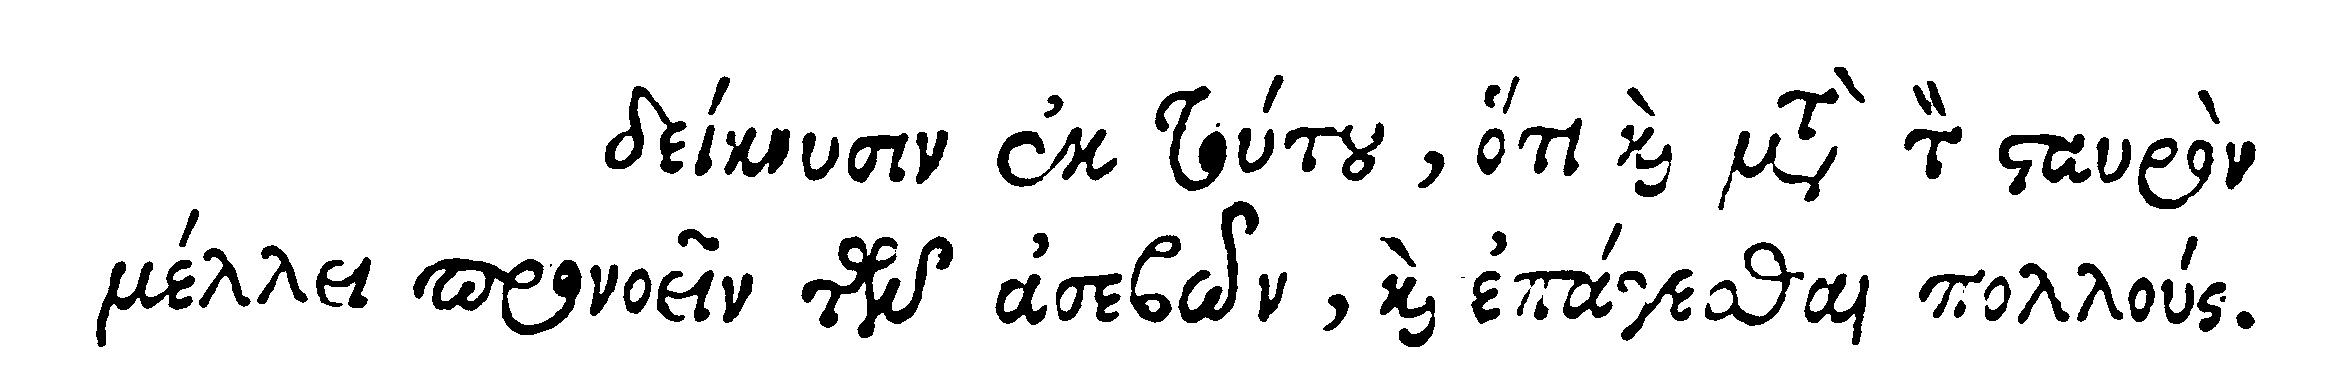 δείκνυσιν ἐκ τούτου, ὅτι καὶ μετὰ τὸν σταυρὸν
μέλλει προνοεῖν τῶν ἀσεβῶν, καὶ ἐπάγεσθαι πολλούς.